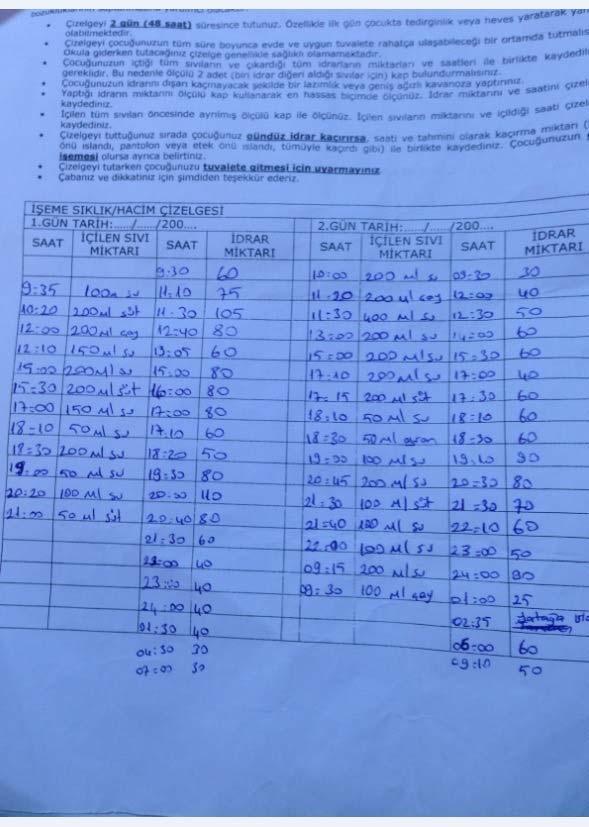 Çizelgeyi 2 gün (48 saat) süresince tutunuz. Özellikle ilk gün çocukta tedirginlik veya heves yaratarak
olabilmektedir.
Çizelgeyi çocuğunuzun tüm süre boyunca evde ve uygun tuvalete rahatça ulaşabileceği bir ortamda
Okula giderken tutacağınız çizelge genellikle sağlıklı olamamaktadır.
Çocuğunuzun içtiği tüm sıvıların ve çıkardığı tüm idrarların miktarları ve saatleri ile birlikte
gereklidir. Bu nedenle ölçülü 2 adet (biri idrar diğeri aldığı sıvılar için) kap bulundurmalısınız.
Çocuğunuzun idrarını dışarı kaçmayacak şekilde bir lazımlık veya geniş ağızlı kavanoza yaptırınız.
Yaptığı idrarın miktarını ölçülü kap kullanarak en hassas biçimde ölçünüz. İdrar miktarını ve saatini
kaydediniz.
İçilen tüm sıvıları öncesinde ayrılmış ölçülü kap ile ölçünüz. İçilen sıvıların miktarını ve içildiği saati
kaydediniz.
Çizelgeyi tuttuğunuz sırada çocuğunuz gündüz idrar kaçırırsa, saati ve tahmini olarak kaçırma miktarı
önü ıslandı, pantolon veya etek önü ıslandı, tümüyle kaçırdı gibi) ile birlikte kaydediniz. Çocuğunuzun
işemesi olursa ayrıca belirtiniz.
Çizelgeyi tutarken çocuğunuzu tuvalete gitmesi için uyarmayınız.
Çabanız ve dikkatiniz için şimdiden teşekkür ederiz.
İŞEME SIKLIK/HACİM ÇİZELGESİ
1.GÜN TARİH:...../...../200.... 2.GÜN TARİH:...../...../200....
SAAT İÇİLEN SIVI MİKTARI SAAT İDRAR MİKTARI SAAT İÇİLEN SIVI MİKTARI SAAT İDRAR MİKTARI
9:30 60 10:00 200 ml su 09:30 30
9:35 su 11:10 75 11:20 200 ml çay 12:00 40
10:20 200ml süt 11:30 105 11:30 400 ml su 12:30 50
12:00 200ml çay 12:40 80 13:00 200 ml su 14:00 60
12:10 150ml su 13:05 60 15:00 200 ml su 15:30 60
15:00 200ml su 15:00 80 17:10 200 ml su 17:00 40
15:30 200ml süt 16:00 80 17:15 200 ml süt 17:30 60
17:00 150 ml su 17:00 80 18:10 50 ml su 18:10 60
18:10 50ml su 17.10 60 18:30 50ml ayran 18:30 60
18:30 200ml su 18:20 50 19:00 100 ml su 19:10 90
19:00 50 ml su 19:30 80 20:45 200 ml su 20:30 80
20:20 100 ml su 20:00 110 21:30 100 ml süt 21:30 70
21:00 50 ml süt 20:40 80 21:40 100 ml su 22:10 60
21:30 60 22:00 100 ml su 23:00 50
40 09:15 200 ml su 24:00
23:00 40 09:30 100 ml çay 01:00 25
24:00 40 02:35
01:30 40 06:00 60
04:30 30 09:10 50
07:00 30